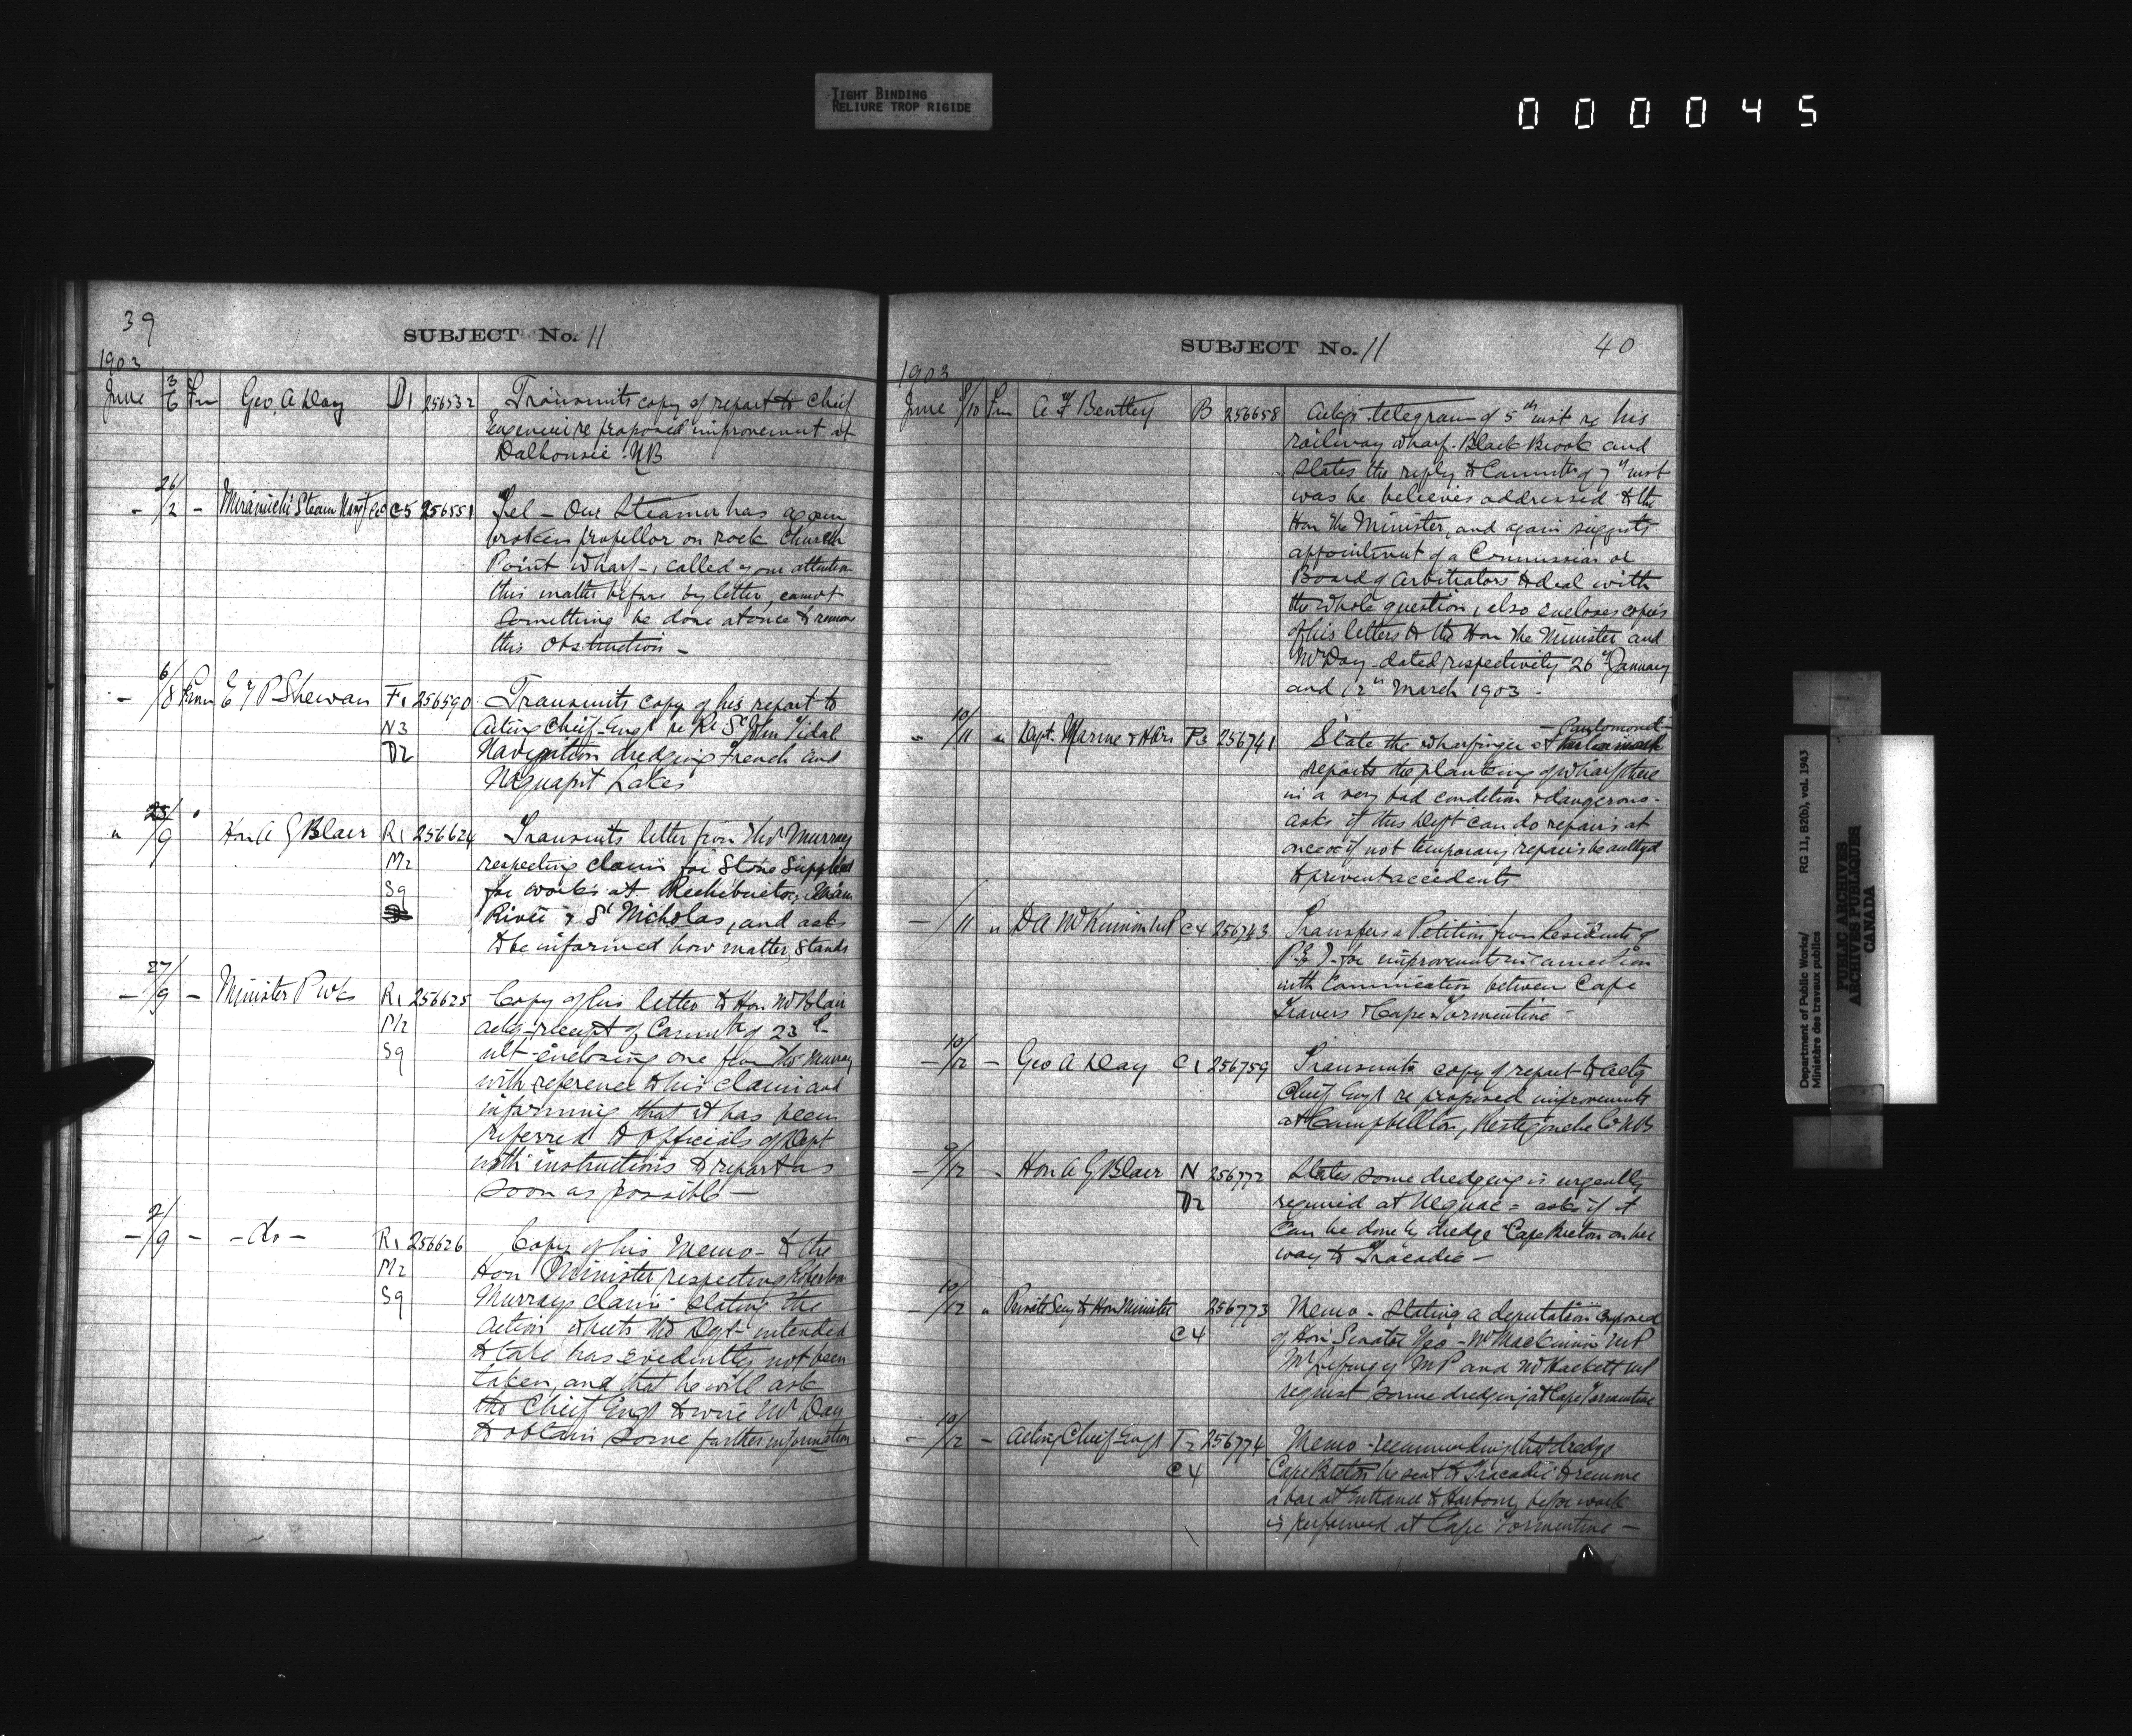 TIGHT BINDING
RELIURE TROP RIGIDE
000045
39
SUBJECT No. 11
1903
June 3/6 Fm Geo. A Day D1 256532 Transmits copy of report to Chief
Engineer re proposed improvement at
Dalhousie N.B
- 26/2 - Miramichi Steam Navgt Co C5 256551 Tel - Our Steamer has again
broken propellor on rock Church
Point wharf -, called your attention
this matter before by letter, cannot
something be done at once to remove
this obstruction -
- 6/8 From E T P Shewan F1 256590 Transmits copy of his report to
N3 Acting Chief Engr re R. St John Tidal
D2 Navigation dredging French and
Maquapit Lakes
" 23/9 " Hon A G Blair R1 256624 Transmits letter from Thos Murray
M2 respecting claim for Stone Supplied
S9 for works at Richibucto,
River & St Nicholas, and asks
to be informed how matter stands
- 27/9 - Minister P Wks R1 256625 Copy of his letter to Hon Mr Blair
M2 ackg receipt of Commtn of 23rd
S9 ult enclosing one from Thos Murray
with reference to his claim and
informing that it has been
referred to officials of Dept
with instructions to report as
soon as possible -
- 2/9 - - do - R1 256626 Copy of his Memo - to the
M2 Hon Minister respecting Robertson
S9 Murrays claim - stating the
action which the Dept intended
to take has evidently not been
taken and that he will ask
the Chief Engr to wire Mr Day
to obtain some further information
SUBJECT No. 11
40
1903
June 8/10 Fm A F Bentley B 256658 Ackgs telegram of 5th inst re his
railway wharf. Black Brook and
states the reply to Commtn of 7th inst
was he believes addressed to the
Hon the Minister, and again suggests
appointment of a Commission or
Board of Arbitrators to deal with
the whole question, also encloses copies
of his letters to the Hon the Minister and
Mr Day - dated respectively 26th January
and 12th March 1903 -
" 10/11 " Dept. Marine & Fishrs P3 256741 State the wharfinger at
reports the planking of wharf there
in a very bad condition & dangerous -
asks if this Dept can do repairs at
once or if not temporary repairs be authzd
to prevent accidents
- /11 " D A McKinnon M.P C4 256743 Transfers a Petition from Residents of
P.E.I - for improvements in connection
with Communication between Cape
Travers & Cape Tormentine -
- 10/12 - Geo A Day C1 256759 Transmits copy of report to actg
Chief Engr re proposed improvements
at Campbellton, Restigouche Co N B
- 9/12 - Hon A G Blair N 256772 States some dredging is urgently
D2 required at Neguac - asks if it
can be done by dredge "Cape Breton on her
way to Tracadie -
- 10/12 " Private Secy to Hon Minister 256773 Memo - stating a deputation composed
C4 of Hon Senator Yeo - Mr MacKinnon M.P
Mr Lefurgey M P and Mr Hackett M P
request some dredging at Cape Tormentine
- 10/12 - Acting Chief Engr T2 256774 Memo - recommending that dredge
C4 Cape Breton be sent to Tracadie to remove
a bar at Entrance to Harbour, before work
is performed at Cape Tormentine -
Department of Public Works/ RG 11, B2(b), vol. 1943
Ministère des travaux publics
PUBLIC ARCHIVES
ARCHIVES PUBLIQUES
CANADA